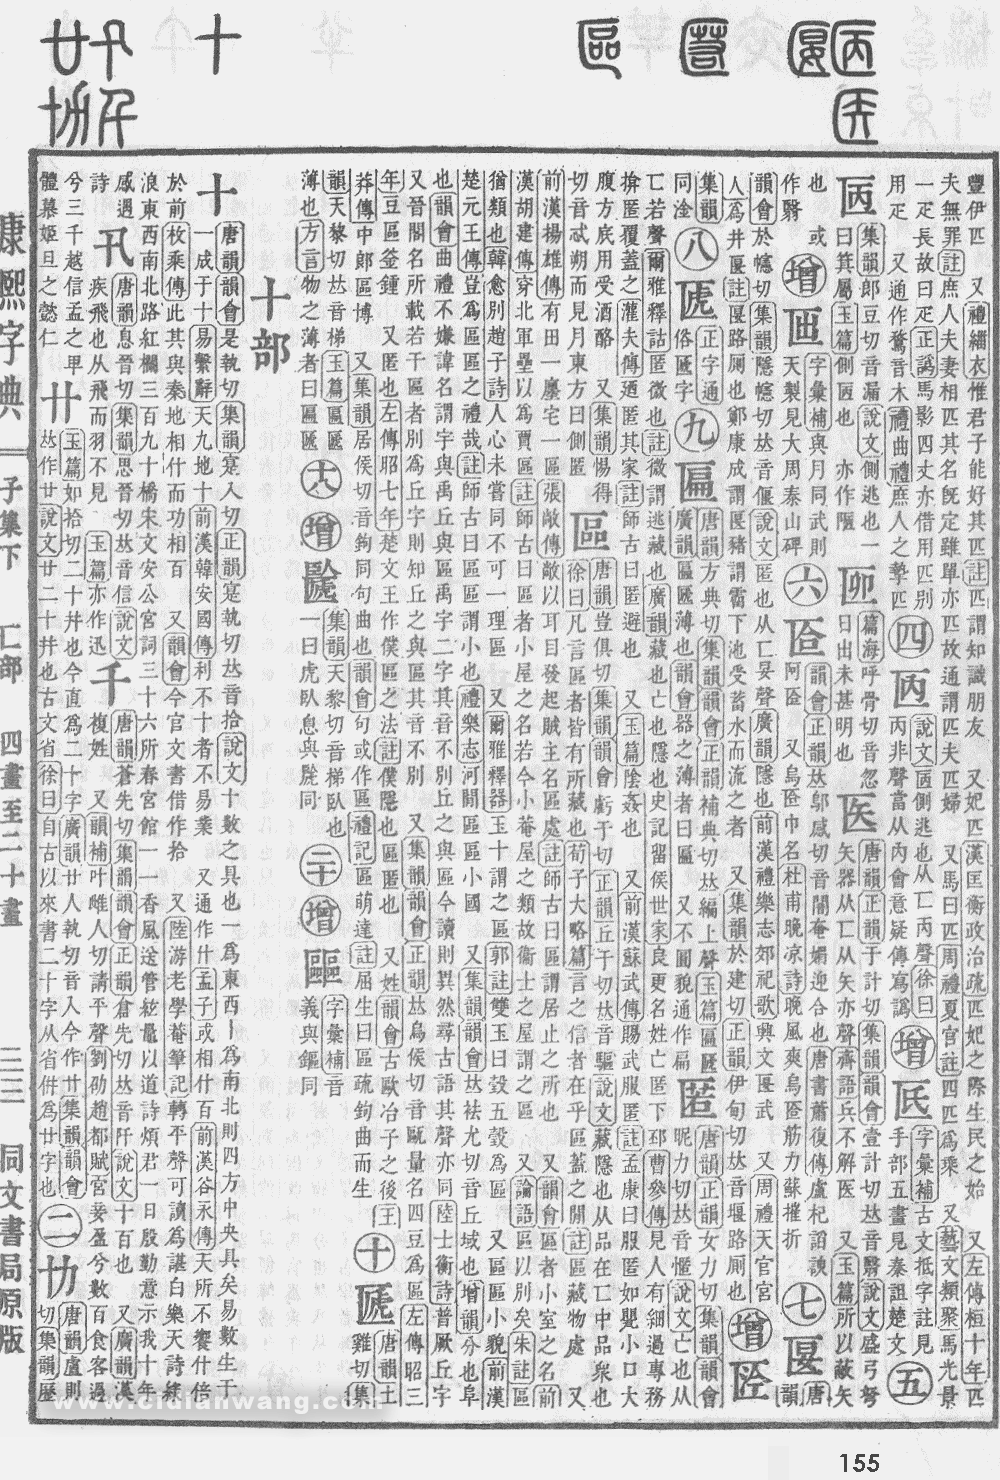 豐伊匹　又禮緇衣惟君子能好其匹註匹謂知識朋友　又妃匹漢匡衡政治疏匹妃之際生民之始　又左傳桓十年匹
夫無罪註庶人夫妻相匹其名旣定雖單亦匹故通謂匹夫匹婦　又馬曰匹周禮夏官註四匹爲乘　又藝文類聚馬光景
一疋長故曰疋正譌馬影四丈亦借用匹別
用疋　又通作鶩音木禮曲禮庶人之摯匹
四
說文側逃也从匚丙聲徐曰
丙非聲當从內會意疑傳寫譌
增
字彙補古文抵字註見
手部五畫見秦詛楚文
五
集韻郎豆切音漏說文側逃也一
曰箕屬玉篇側匼也　亦作陋
篇海呼骨切音忽
日出未甚明也
医
唐韻正韻于計切集韻韻會壹計切𠀤音翳說文盛弓弩
矢器从匚从矢亦聲齊語兵不解医　又玉篇所以蔽矢
也　或
作翳
增
字彙補與月同武則
天製見大周泰山碑
六
匼
韻會正韻𠀤鄔感切音闇菴媕迎合也唐書蕭復傳盧杞諂諛
阿匼　又烏匼巾名杜甫晚凉詩晚風爽烏匼筋力蘇摧折
七
匽
唐
韻
韻會於幰切集韻隱幰切𠀤音偃說文匿也从匚妟聲廣韻隱也前漢禮樂志郊祀歌興文匽武　又周禮天官宮
人爲井匽註匽路厠也鄭康成謂匽豬謂霤下池受蓄水而流之者　又集韻於建切正韻伊甸切𠀤音堰路厠也
增
集韻
同淦
八
正字通
俗匾字
九
匾
唐韻方典切集韻韻會正韻補典切𠀤編上聲玉篇匾㔸
廣韻匾㔸薄也韻會器之薄者曰匾　又不圓貌通作扁
匿
唐韻正韻女力切集韻韻會
昵力切𠀤音慝說文亡也从
匚若聲爾雅釋詁匿微也註微謂逃藏也廣韻藏也亡也隱也史記留侯世家良更名姓亡匿下邳曹參傳見人有細過專務
揜匿覆蓋之灌夫傳廼匿其家註師古曰匿避也　又玉篇陰姦也　又前漢蘇武傳賜武服匿註孟康曰服匿如甖小口大
腹方底用受酒酪　又集韻惕得
切音忒朔而見月東方曰側匿
區
唐韻豈俱切集韻韻會虧于切正韻丘于切𠀤音驅說文藏隱也从品在匚中品衆也
徐曰凡言區者皆有所藏也荀子大略篇言之信者在乎區蓋之閒註區藏物處　又
前漢揚雄傳有田一廛宅一區張敞傳敞以耳目發起賊主名區處註師古曰區謂居止之所也　又韻會區者小室之名前
漢胡建傳穿北軍壘以爲賈區註師古曰區者小屋之名若今小菴屋之類故衞士之屋謂之區　又論語區以別矣朱註區
猶類也韓愈別趙子詩人心未嘗同不可一理區　又爾雅釋器玉十謂之區郭註雙玉曰瑴五瑴爲區　又區區小貌前漢
楚元王傳豈爲區區之禮哉註師古曰區區謂小也禮樂志河閒區區小國　又集韻韻會𠀤袪尤切音丘域也增韻分也阜
也韻會曲禮不嫌諱名謂宇與禹丘與區二字其音不別丘之與區今讀則異然尋古語其聲亦同陸士衡詩普厥丘宇
又晉閣名所載若干區者別爲丘字則知丘之與區其音不別　又集韻韻會正韻𠀤烏侯切音甌量名四豆爲區左傳昭三
年豆區釜鍾　又匿也左傳昭七年楚文王作僕區之法註僕隱也區匿也　又姓韻會古歐冶子之後王
莽傳中郞區博　又集韻居侯切音鉤同句曲也韻會句或作區禮記區萌達註屈生曰區疏鉤曲而生
十
唐韻土
雞切集
韻天黎切𠀤音梯玉篇匾㔸
薄也方言物之薄者曰匾㔸
十八
增
集韻天黎切音梯臥也
一曰虎臥息與𧇩同
二十
增
字彙補音
義與鏂同
十部
十
唐韻韻會是執切集韻寔入切正韻寔執切𠀤音拾說文十數之具也一爲東西丨爲南北則四方中央具矣易數生于
一成于十易繫辭天九地十前漢韓安國傳利不十者不易業　又通作什孟子或相什百前漢谷永傳天所不饗什倍
於前枚乘傳此其與秦地相什而功相百　又韻會今官文書借作拾　又陸游老學菴筆記轉平聲可讀爲諶白樂天詩綠
浪東西南北路紅欄三百九十橋宋文安公宮詞三十六所春宮館一一香風送管絃鼂以道詩煩君一日殷勤意示我十年
感遇
詩
卂
唐韻息晉切集韻思晉切𠀤音信說文
疾飛也从飛而羽不見　玉篇亦作迅
千
唐韻蒼先切集韻韻會正韻倉先切𠀤音阡說文十百也　又廣韻漢
複姓　又韻補叶雌人切請平聲劉劭趙都賦宮妾盈兮數百食客過
兮三千越信孟之𤰞
體慕姬旦之懿仁
卄
玉篇如拾切二十幷也今直爲一十字廣韻卄人執切音入今作廿集韻韻會
𠀤作廿說文廿二十幷也古文省徐曰自古以來書二十字从省併爲廿字也
二
劜
唐韻盧則
切集韻歷
康熙字典　子集下　匚部　四畫至二十畫　二三　同文書局原版
www.cidianwang.com
155